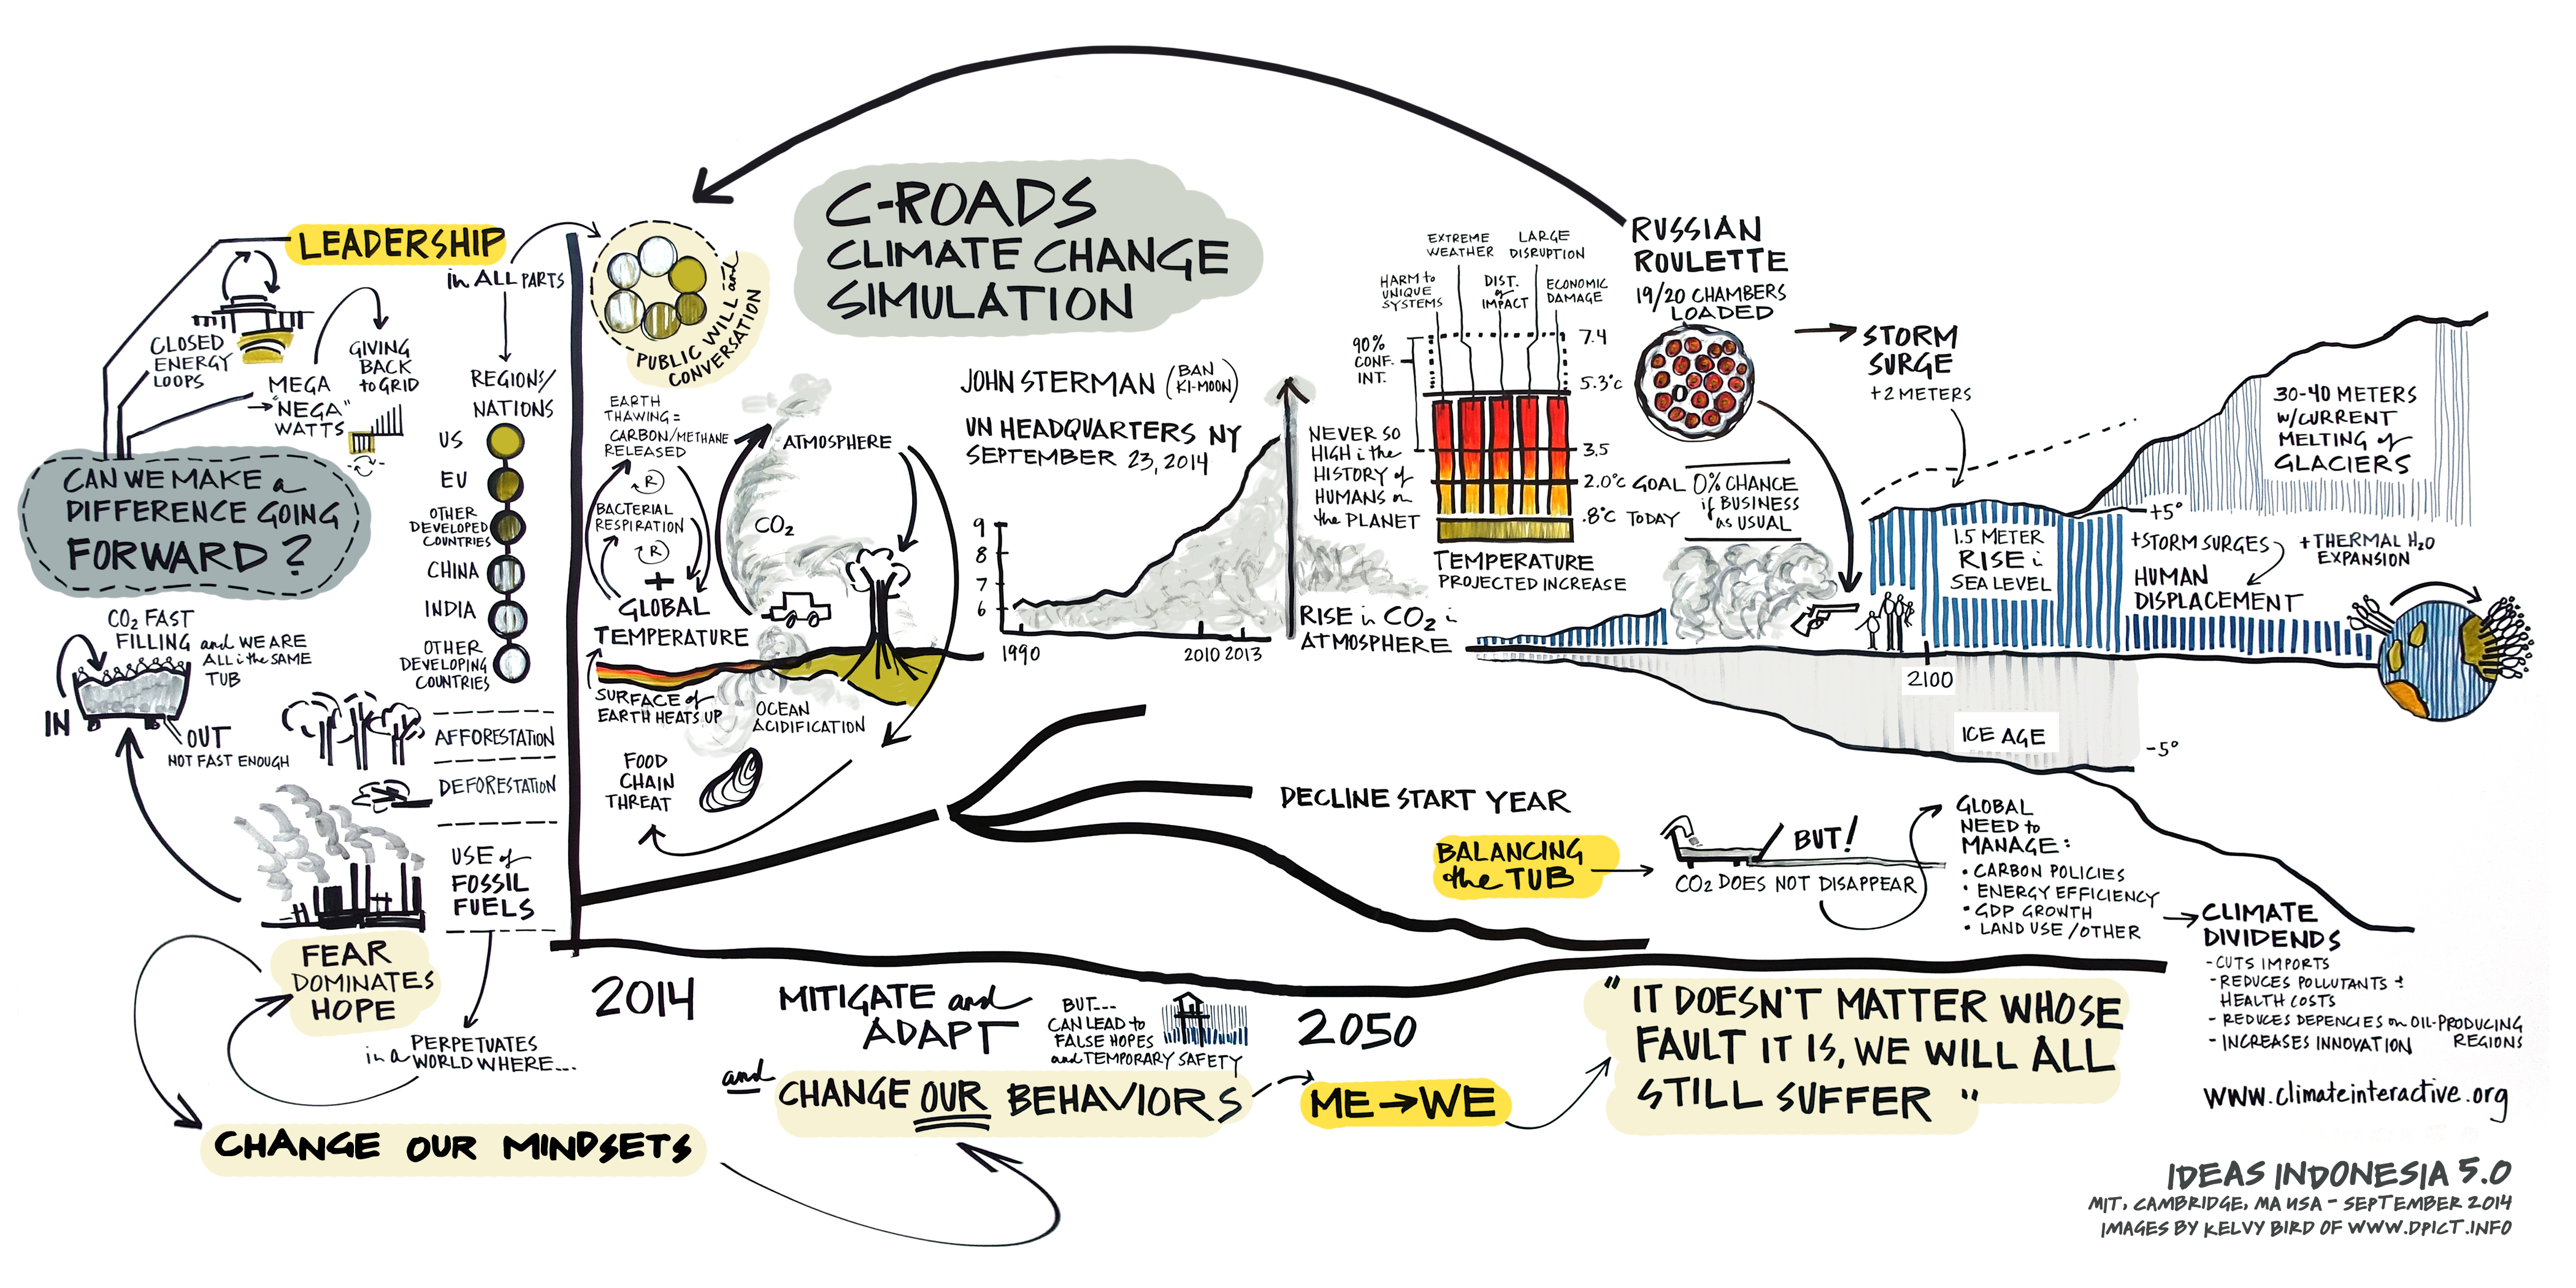 C-ROADS
CLIMATE CHANGE
SIMULATION
LEADERSHIP
in ALL PARTS
CLOSED
ENERGY
LOOPS
MEGA
"NEGA"
WATTS
GIVING
BACK
to GRID
REGIONS/
NATIONS
US
EU
OTHER
DEVELOPED
COUNTRIES
CHINA
INDIA
OTHER
DEVELOPING
COUNTRIES
AFFORESTATION
DEFORESTATION
USE of
FOSSIL
FUELS
CAN WE MAKE a
DIFFERENCE GOING
FORWARD?
CO2 FAST
FILLING and WE ARE
ALL i the SAME
TUB
IN
OUT
NOT FAST ENOUGH
FEAR
DOMINATES
HOPE
PERPETUATES
in a WORLD WHERE...
CHANGE OUR MINDSETS
PUBLIC WILL and
CONVERSATION
EARTH
THAWING =
CARBON/METHANE
RELEASED
R
BACTERIAL
RESPIRATION
R
+
GLOBAL
TEMPERATURE
SURFACE of
EARTH HEATS UP
ATMOSPHERE
CO2
OCEAN
ACIDIFICATION
FOOD
CHAIN
THREAT
JOHN STERMAN (BAN
KI-MOON)
UN HEADQUARTERS NY
SEPTEMBER 23, 2014
9
8
7
6
1990
2010 2013
NEVER SO
HIGH i the
HISTORY of
HUMANS on
the PLANET
RISE i CO2 i
ATMOSPHERE
EXTREME
WEATHER
LARGE
DISRUPTION
HARM to
UNIQUE
SYSTEMS
DIST.
of
IMPACT
ECONOMIC
DAMAGE
90%
CONF.
INT.
7.4
5.3°C
3.5
2.0°C GOAL
.8°C TODAY
TEMPERATURE
PROJECTED INCREASE
0% CHANCE
if BUSINESS
as USUAL
RUSSIAN
ROULETTE
19/20 CHAMBERS
LOADED
STORM
SURGE
+2 METERS
30-40 METERS
W/CURRENT
MELTING of
GLACIERS
1.5 METER
RISE i
SEA LEVEL
+5°
+STORM SURGES
+THERMAL H2O
EXPANSION
HUMAN
DISPLACEMENT
2100
ICE AGE
-5°
DECLINE START YEAR
BALANCING
the TUB
BUT!
CO2 DOES NOT DISAPPEAR
GLOBAL
NEED to
MANAGE:
• CARBON POLICIES
• ENERGY EFFICIENCY
• GDP GROWTH
• LAND USE/OTHER
CLIMATE
DIVIDENDS
-CUTS IMPORTS
-REDUCES POLLUTANTS +
HEALTH COSTS
-REDUCES DEPENCIES on OIL-PRODUCING
REGIONS
-INCREASES INNOVATION
www.climateinteractive.org
2014
MITIGATE and
ADAPT
BUT...
CAN LEAD to
FALSE HOPES
and TEMPORARY SAFETY
2050
and
CHANGE OUR BEHAVIORS
ME→WE
"IT DOESN'T MATTER WHOSE
FAULT IT IS, WE WILL ALL
STILL SUFFER"
IDEAS INDONESIA 5.0
MIT, CAMBRIDGE, MA USA - SEPTEMBER 2014
IMAGES BY KELVY BIRD OF WWW.DPICT.INFO